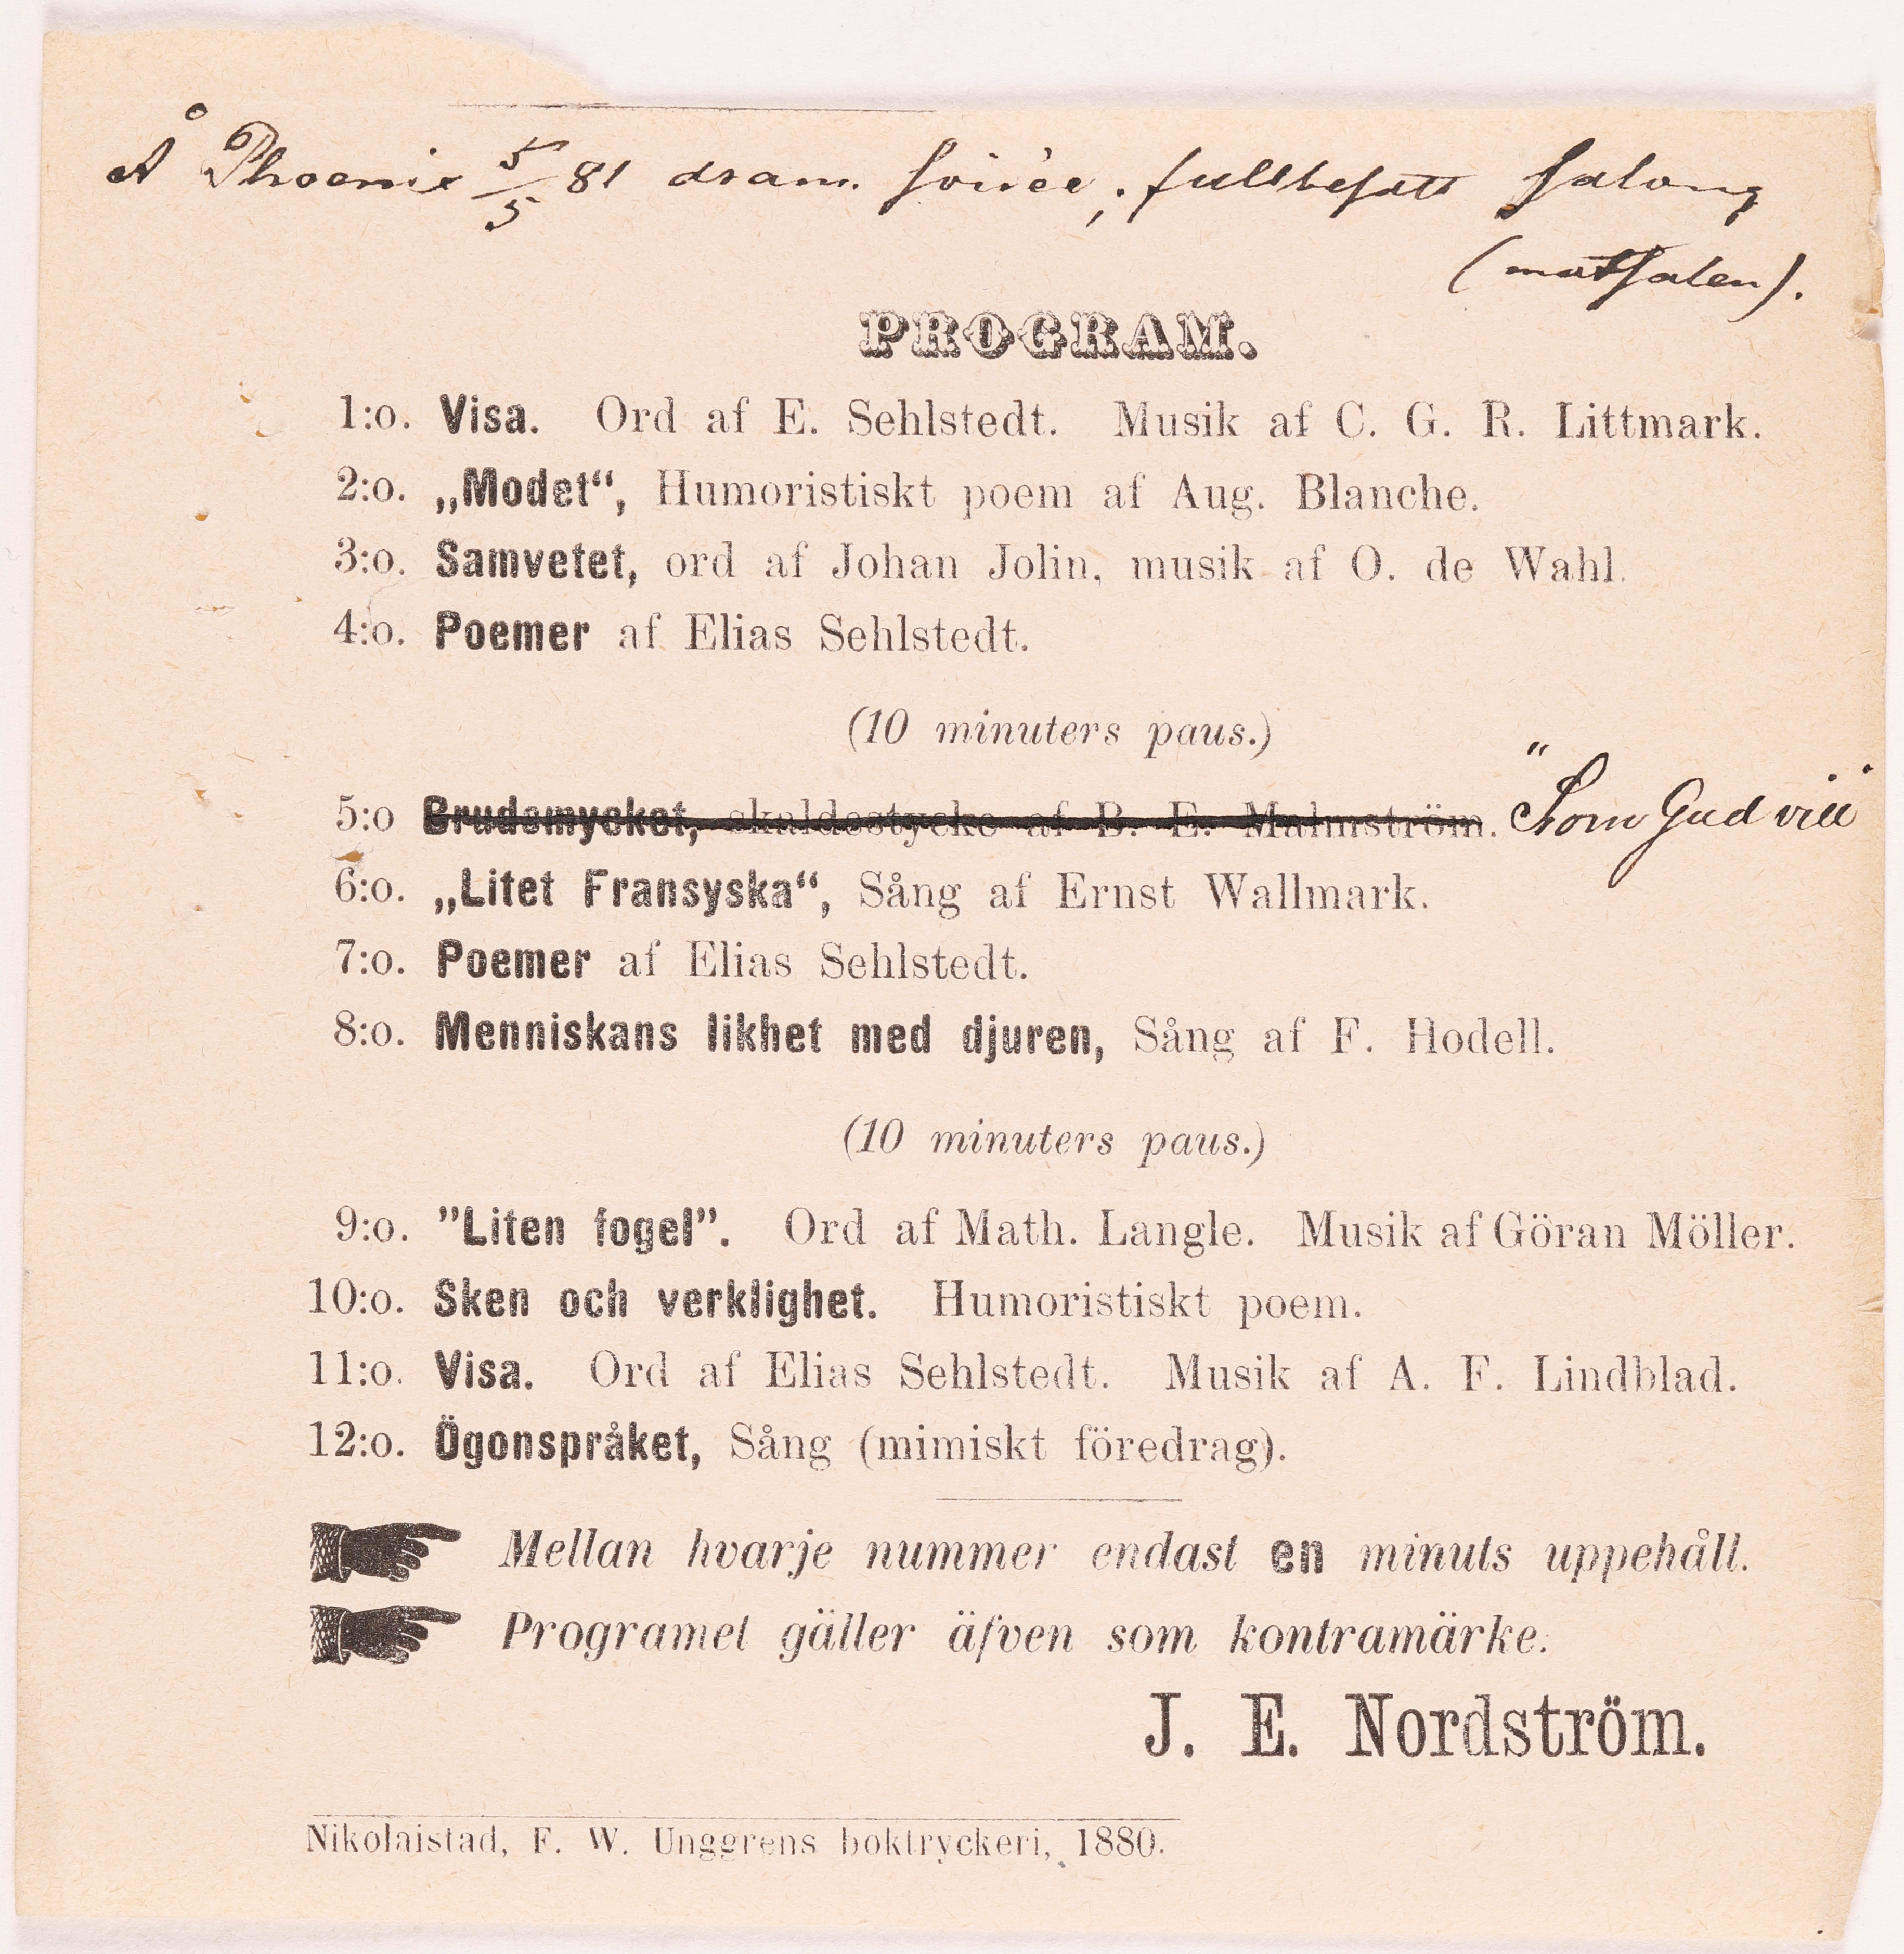 Å Phoenix 5/5 81 dram. soirée; fullbesatt salong
(matsalen).
PROGRAM.
1:o. Visa. Ord af E. Sehlstedt. Musik af C. G. R. Littmark.
2:o. „Modet“, Humoristiskt poem af Aug. Blanche.
3:o. Samvetet, ord af Johan Jolin, musik af O. de Wahl.
4:o. Poemer af Elias Sehlstedt.
(10 minuters paus.)
5:o Brudemycket, skaldestycke af B. E. Malmström. "Som Gud vill"
6:o. „Litet Fransyska“, Sång af Ernst Wallmark.
7:o. Poemer af Elias Sehlstedt.
8:o. Menniskans likhet med djuren, Sång af F. Hodell.
(10 minuters paus.)
9:o. ”Liten fogel”. Ord af Math. Langle. Musik af Göran Möller.
10:o. Sken och verklighet. Humoristiskt poem.
11:o. Visa. Ord af Elias Sehlstedt. Musik af A. F. Lindblad.
12:o. Ögonspråket, Sång (mimiskt föredrag).
Mellan hvarje nummer endast en minuts uppehåll.
Programet gäller äfven som kontramärke.
J. E. Nordström.
Nikolaistad, F. W. Unggrens boktryckeri, 1880.